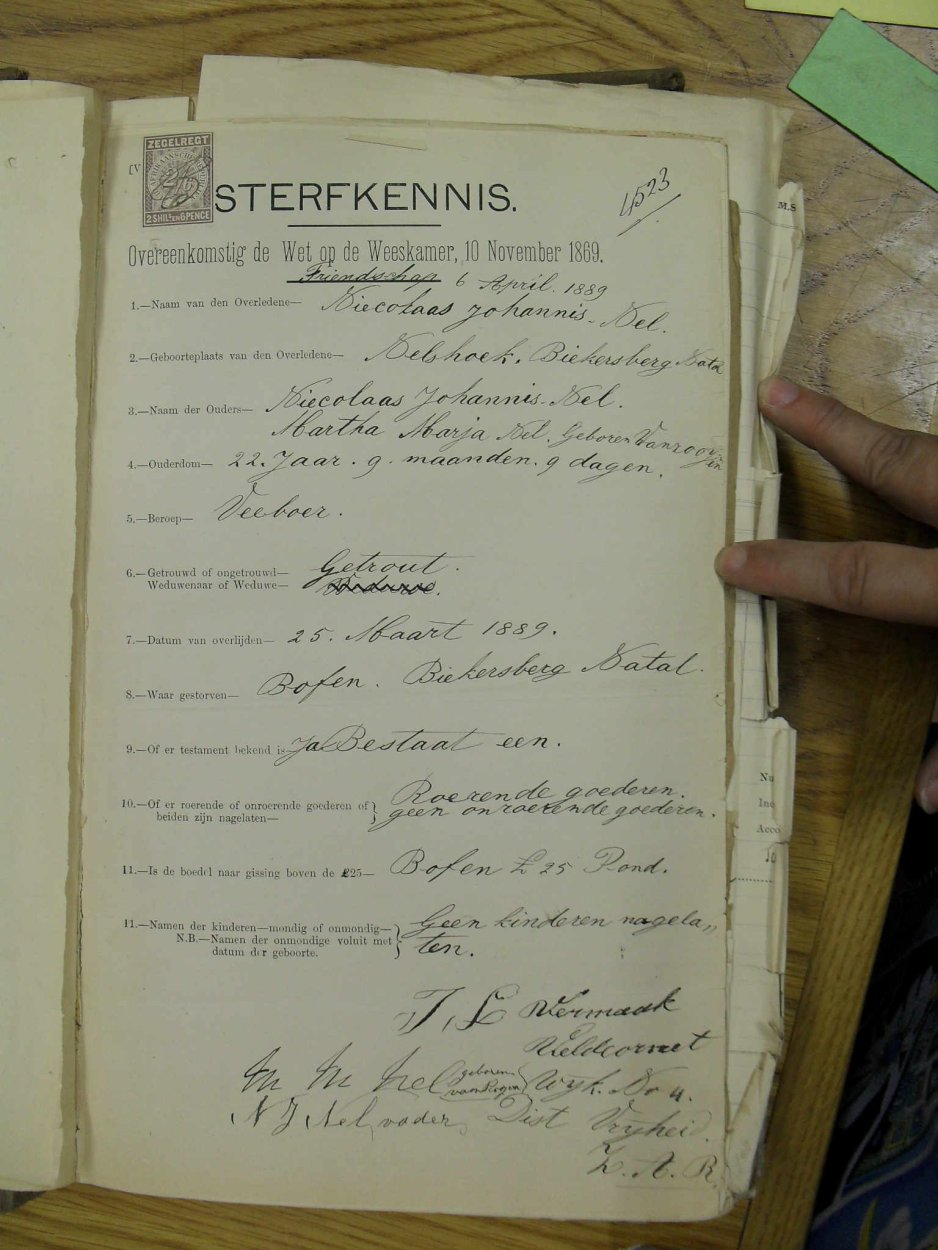 ZEGELREGT
2 SHILS EN 6 PENCE
STERFKENNIS.
4523
Overeenkomstig de Wet op de Weeskamer, 10 November 1869.
Friendschap 6 April. 1889
1.—Naam van den Overledene— Niecolaas Johannis. Nel.
2.—Geboorteplaats van den Overledene— Nelshoek. Biekersberg Natal
3.—Naam der Ouders— Niecolaas Johannis. Nel.
Martha Marja Nel. Geboren Vanrooyen
4.—Ouderdom— 22. Jaar. 9. maanden. 9 dagen.
5.—Beroep— Veeboer.
6.—Getrouwd of ongetrouwd— Getrout.
Weduwenaar of Weduwe—
7.—Datum van overlijden— 25. Maart 1889.
8.—Waar gestorven— Bofen. Biekersberg Natal.
9.—Of er testament bekend is— Ja Bestaat een.
10.—Of er roerende of onroerende goederen of } Roerende goederen.
beiden zijn nagelaten— geen onroerende goederen.
11.—Is de boedel naar gissing boven de £25— Bofen £ 25 Pond.
11.—Namen der kinderen—mondig of onmondig— } Geen kinderen nagela
N.B.—Namen der onmondige voluit met ten.
datum der geboorte.
Vermaak
Veldcornet
M M Nel (geboren van Rogen) Wyk. No 4.
N J Nel vader Dist Vryheid.
Z. A. R.
M.S
Nu
Ine
Acco